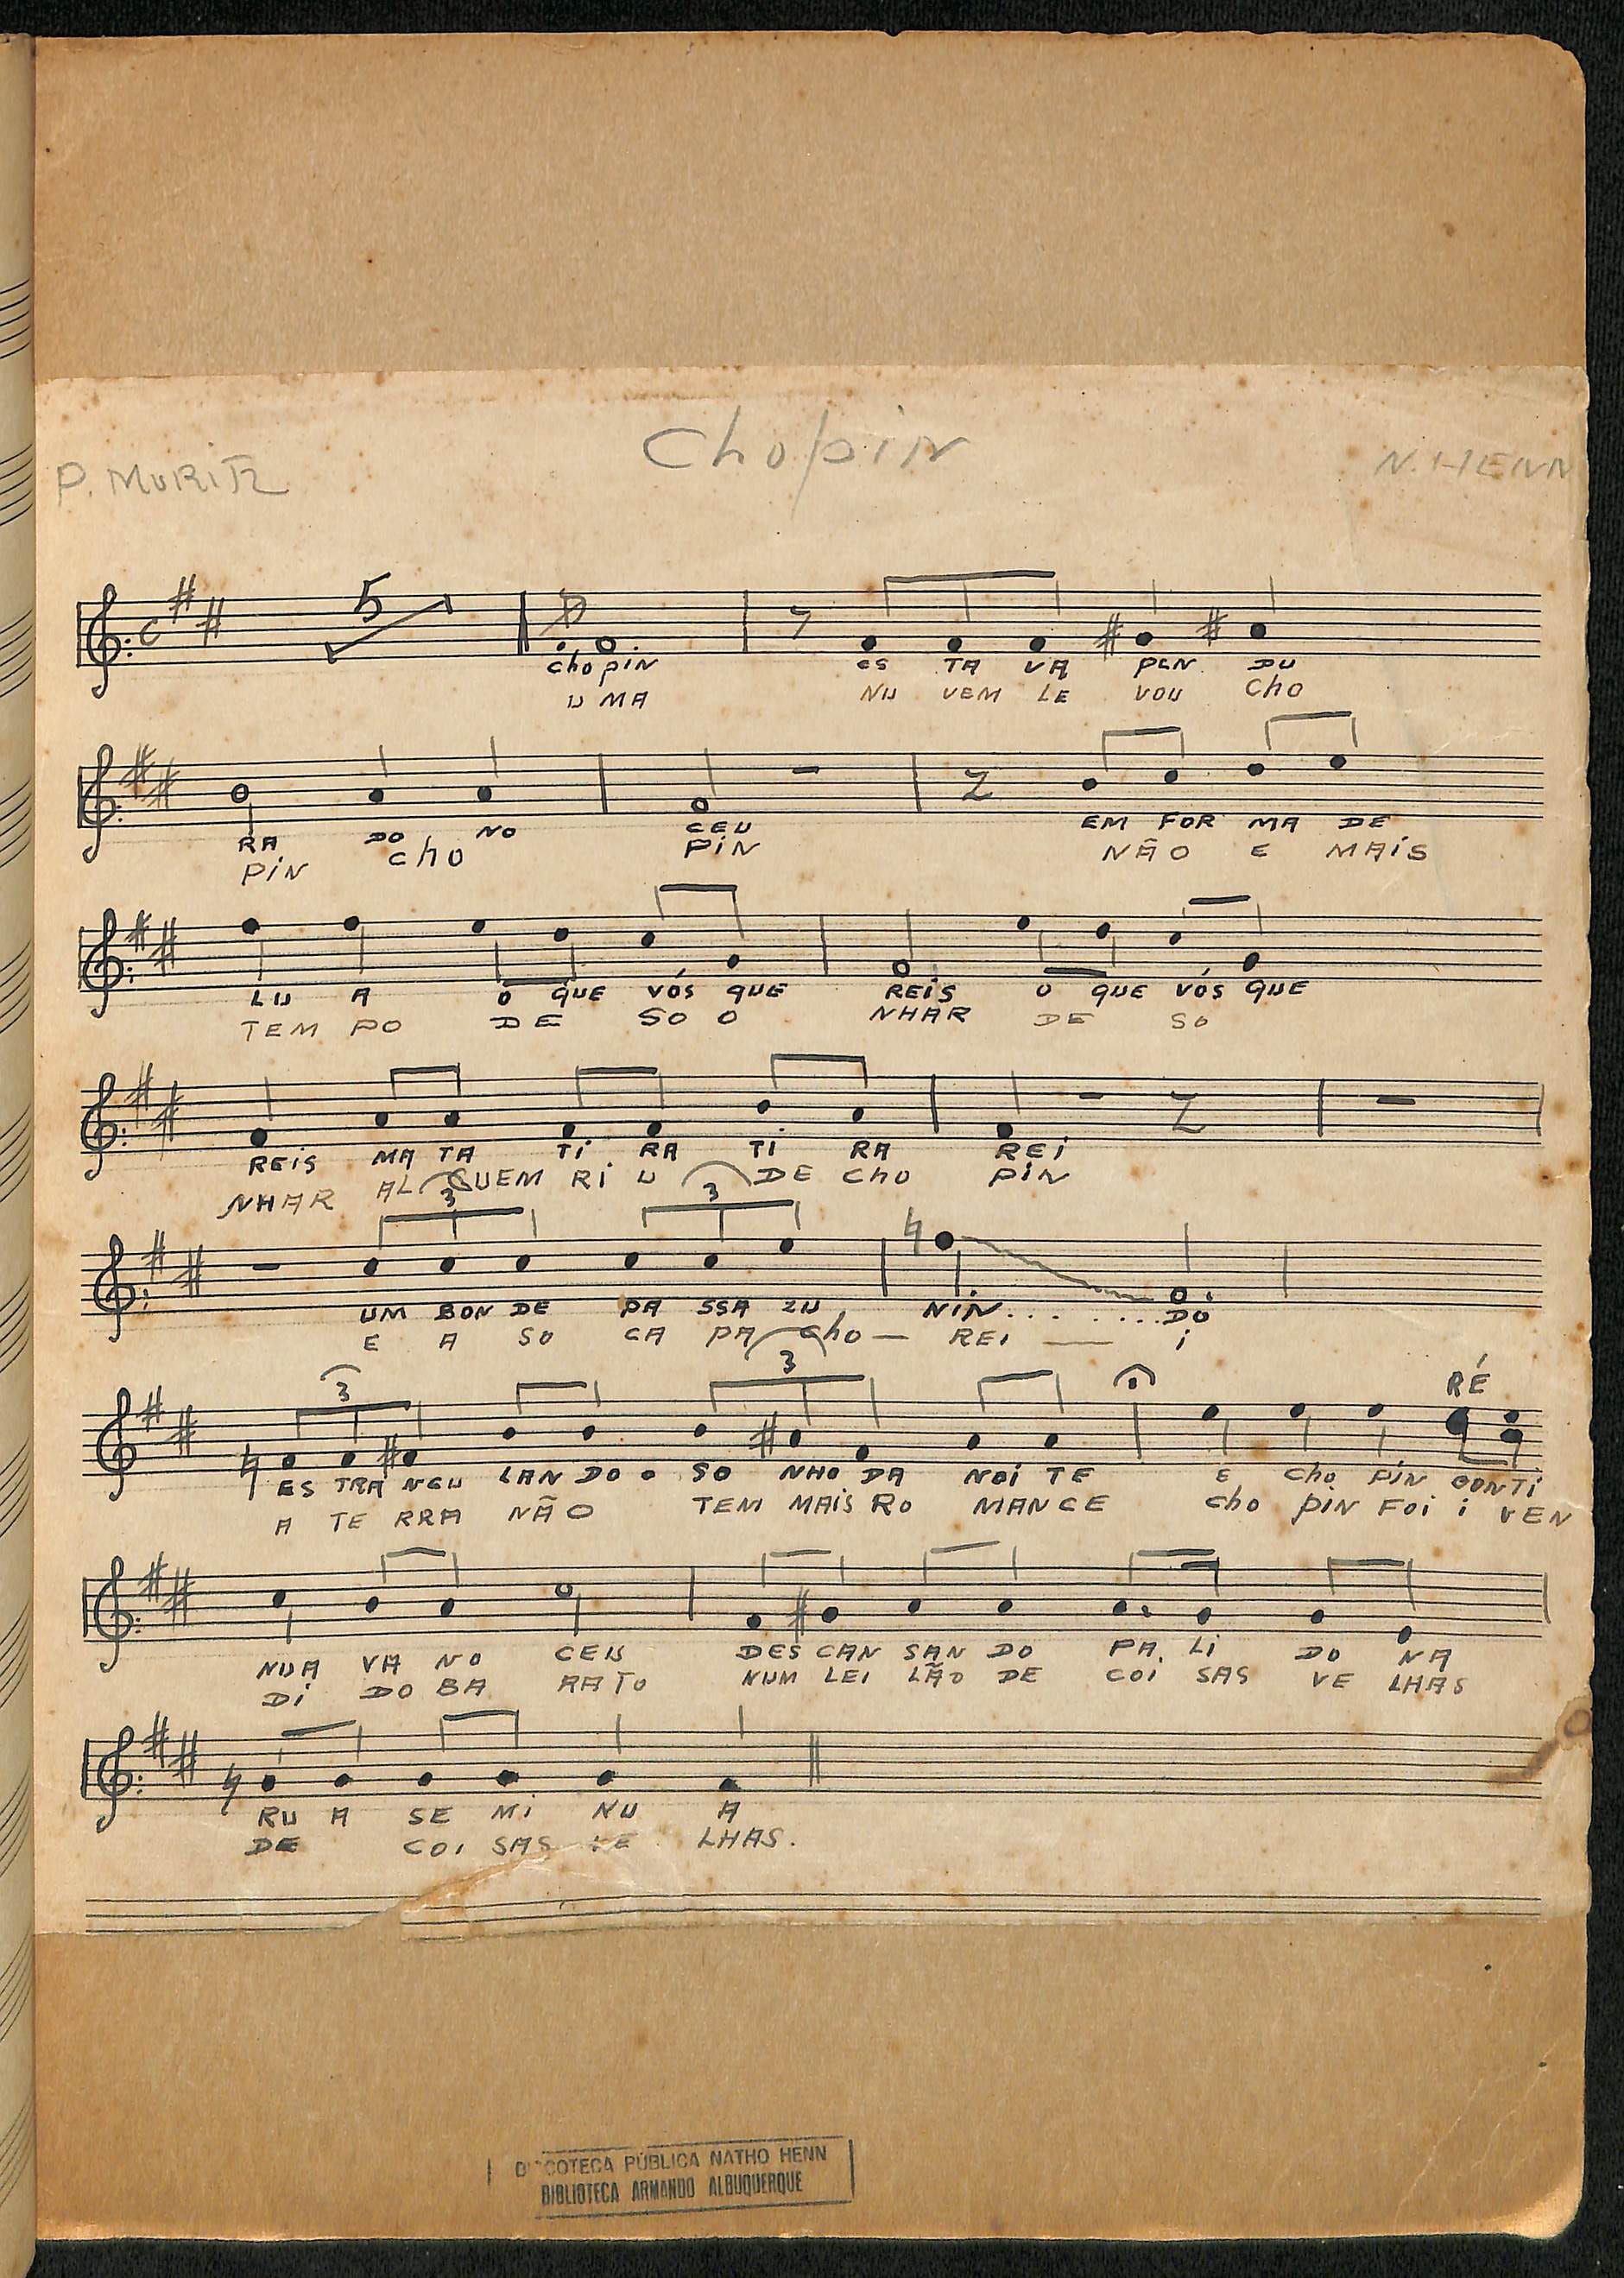 Chopin
P. MURITZ N. HENN
5
chopin ES TA VA PEN DU
U MA NU VEM LE VOU Cho
RA DO NO CEU EM FOR MA DE
PiN cho PiN NÃO E MAiS
LU A O QUE VÓS QUE REiS O QUE VÓS QUE
TEM PO DE SO O NHAR DE SO
REiS MA TA Ti RA Ti RA REi
NHAR AL GUEM Ri U DE Cho PiN
3 3
UM BON DE PA SSA ZU NiN......... DO
E A SO CA PA cho — REi — i
3 3 RÉ
ES TRA NGU LAN DO O SO NHO DA NOi TE E Cho PiN CONTi
A TE RRA NÃO TEM MAiS RO MANCE Cho PiN FOi i VEN
NUA VA NO CEU DES CAN SAN DO PA Li DO NA
Di DO BA RATO NUM LEi LÃO DE COi SAS VE LHAS
RU A SE Mi NU A
DE COi SAS VE LHAS.
DISCOTECA PÚBLICA NATHO HENN
BIBLIOTECA ARMANDO ALBUQUERQUE